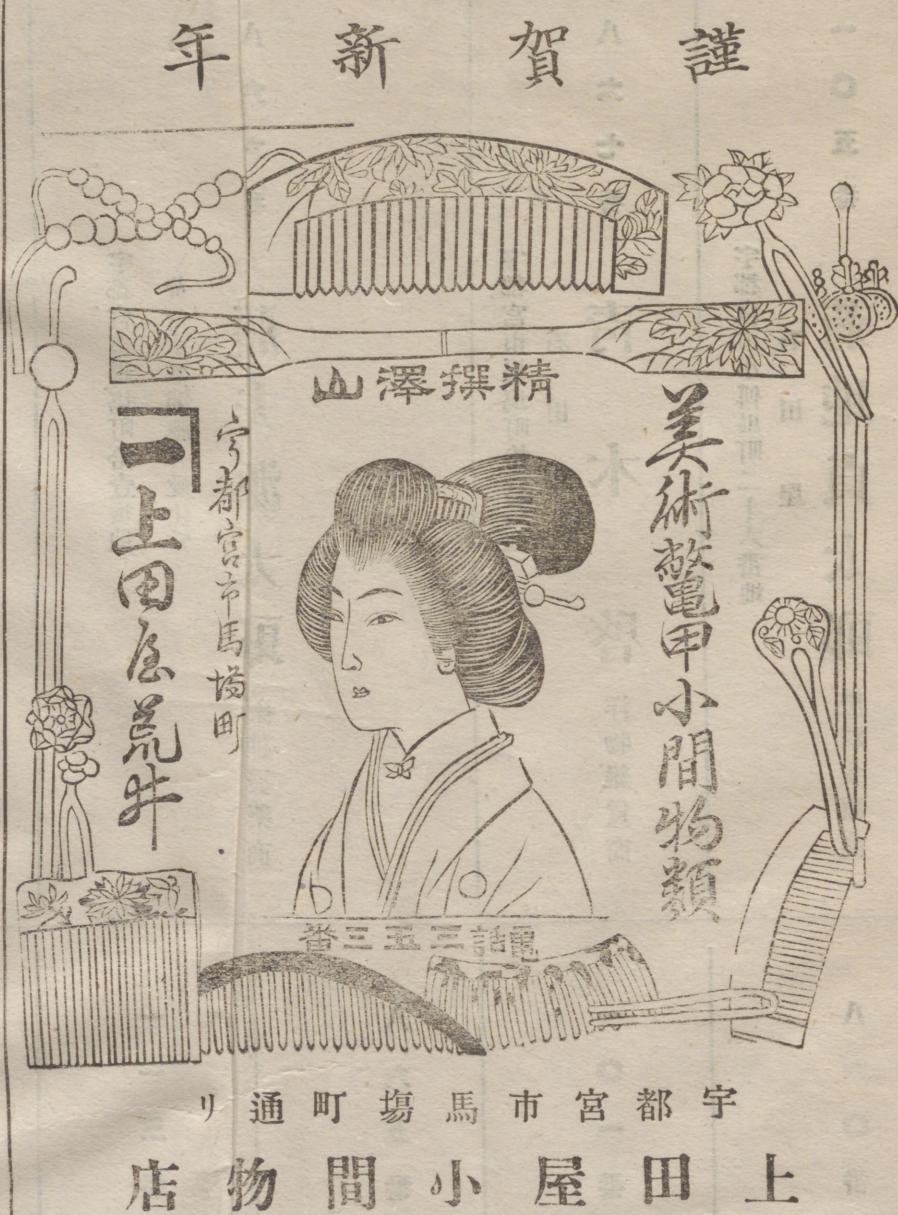 謹賀新年
精撰澤山
美術鼈甲小間物類
宇都宮市馬塲町
一上田屋荒井
電話三五三番
宇都宮市馬塲町通リ
上田屋小間物店